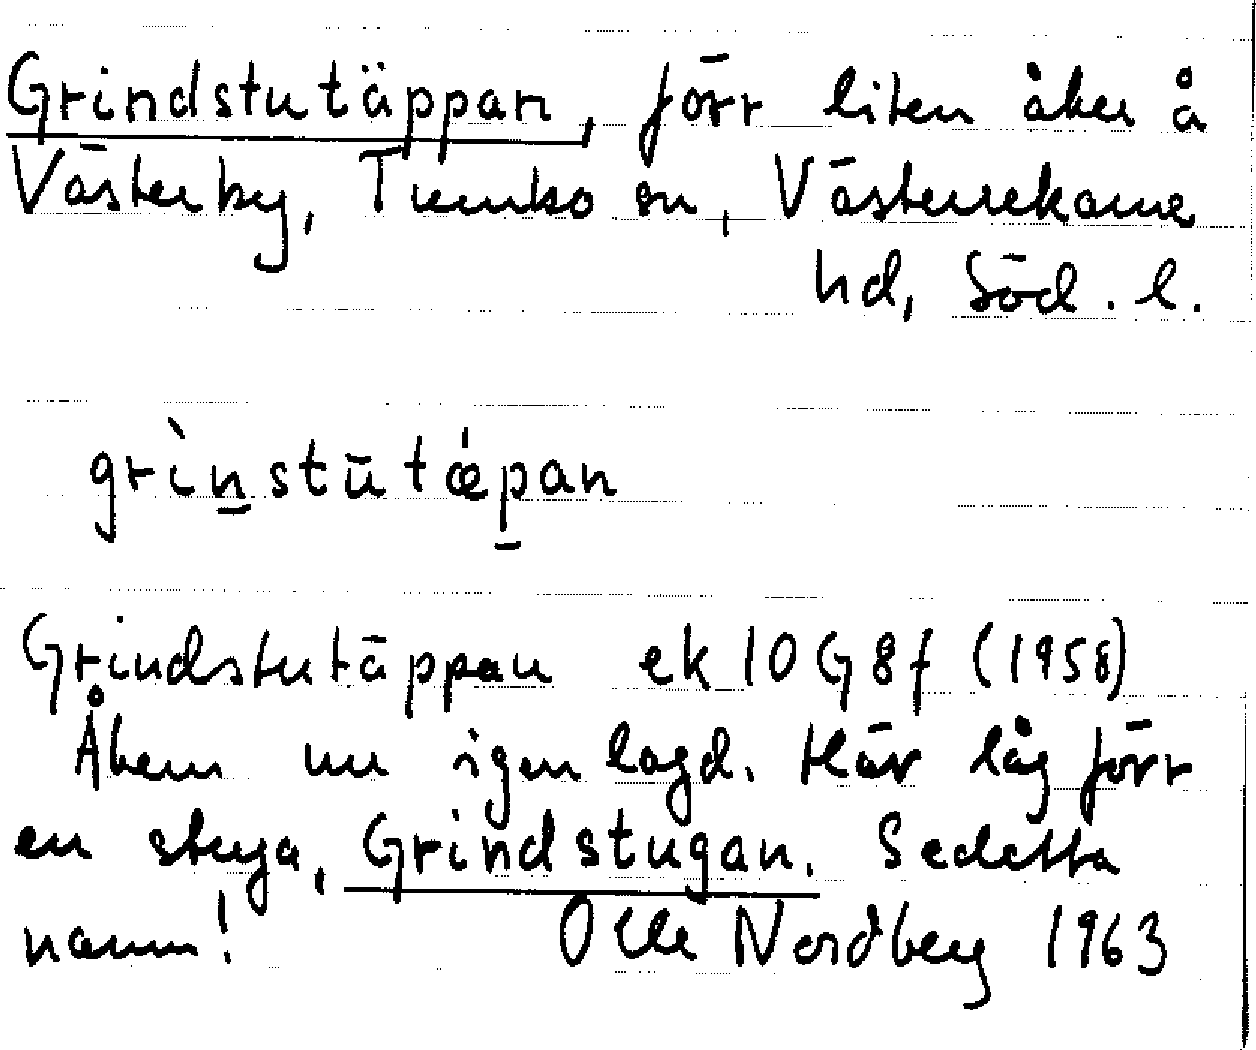 Grindstutäppan, förr liten åker å
Västerby, Turinko sn, Västerrekarne
hd, Söd. l.
grìn̲stūtǽp̲an
Grindstutäppan ek 10G8f (1958)
Åkern nu igenlagd. Här låg förr
en stuga, Grindstugan. Se detta
namn! Olle Nordberg 1963